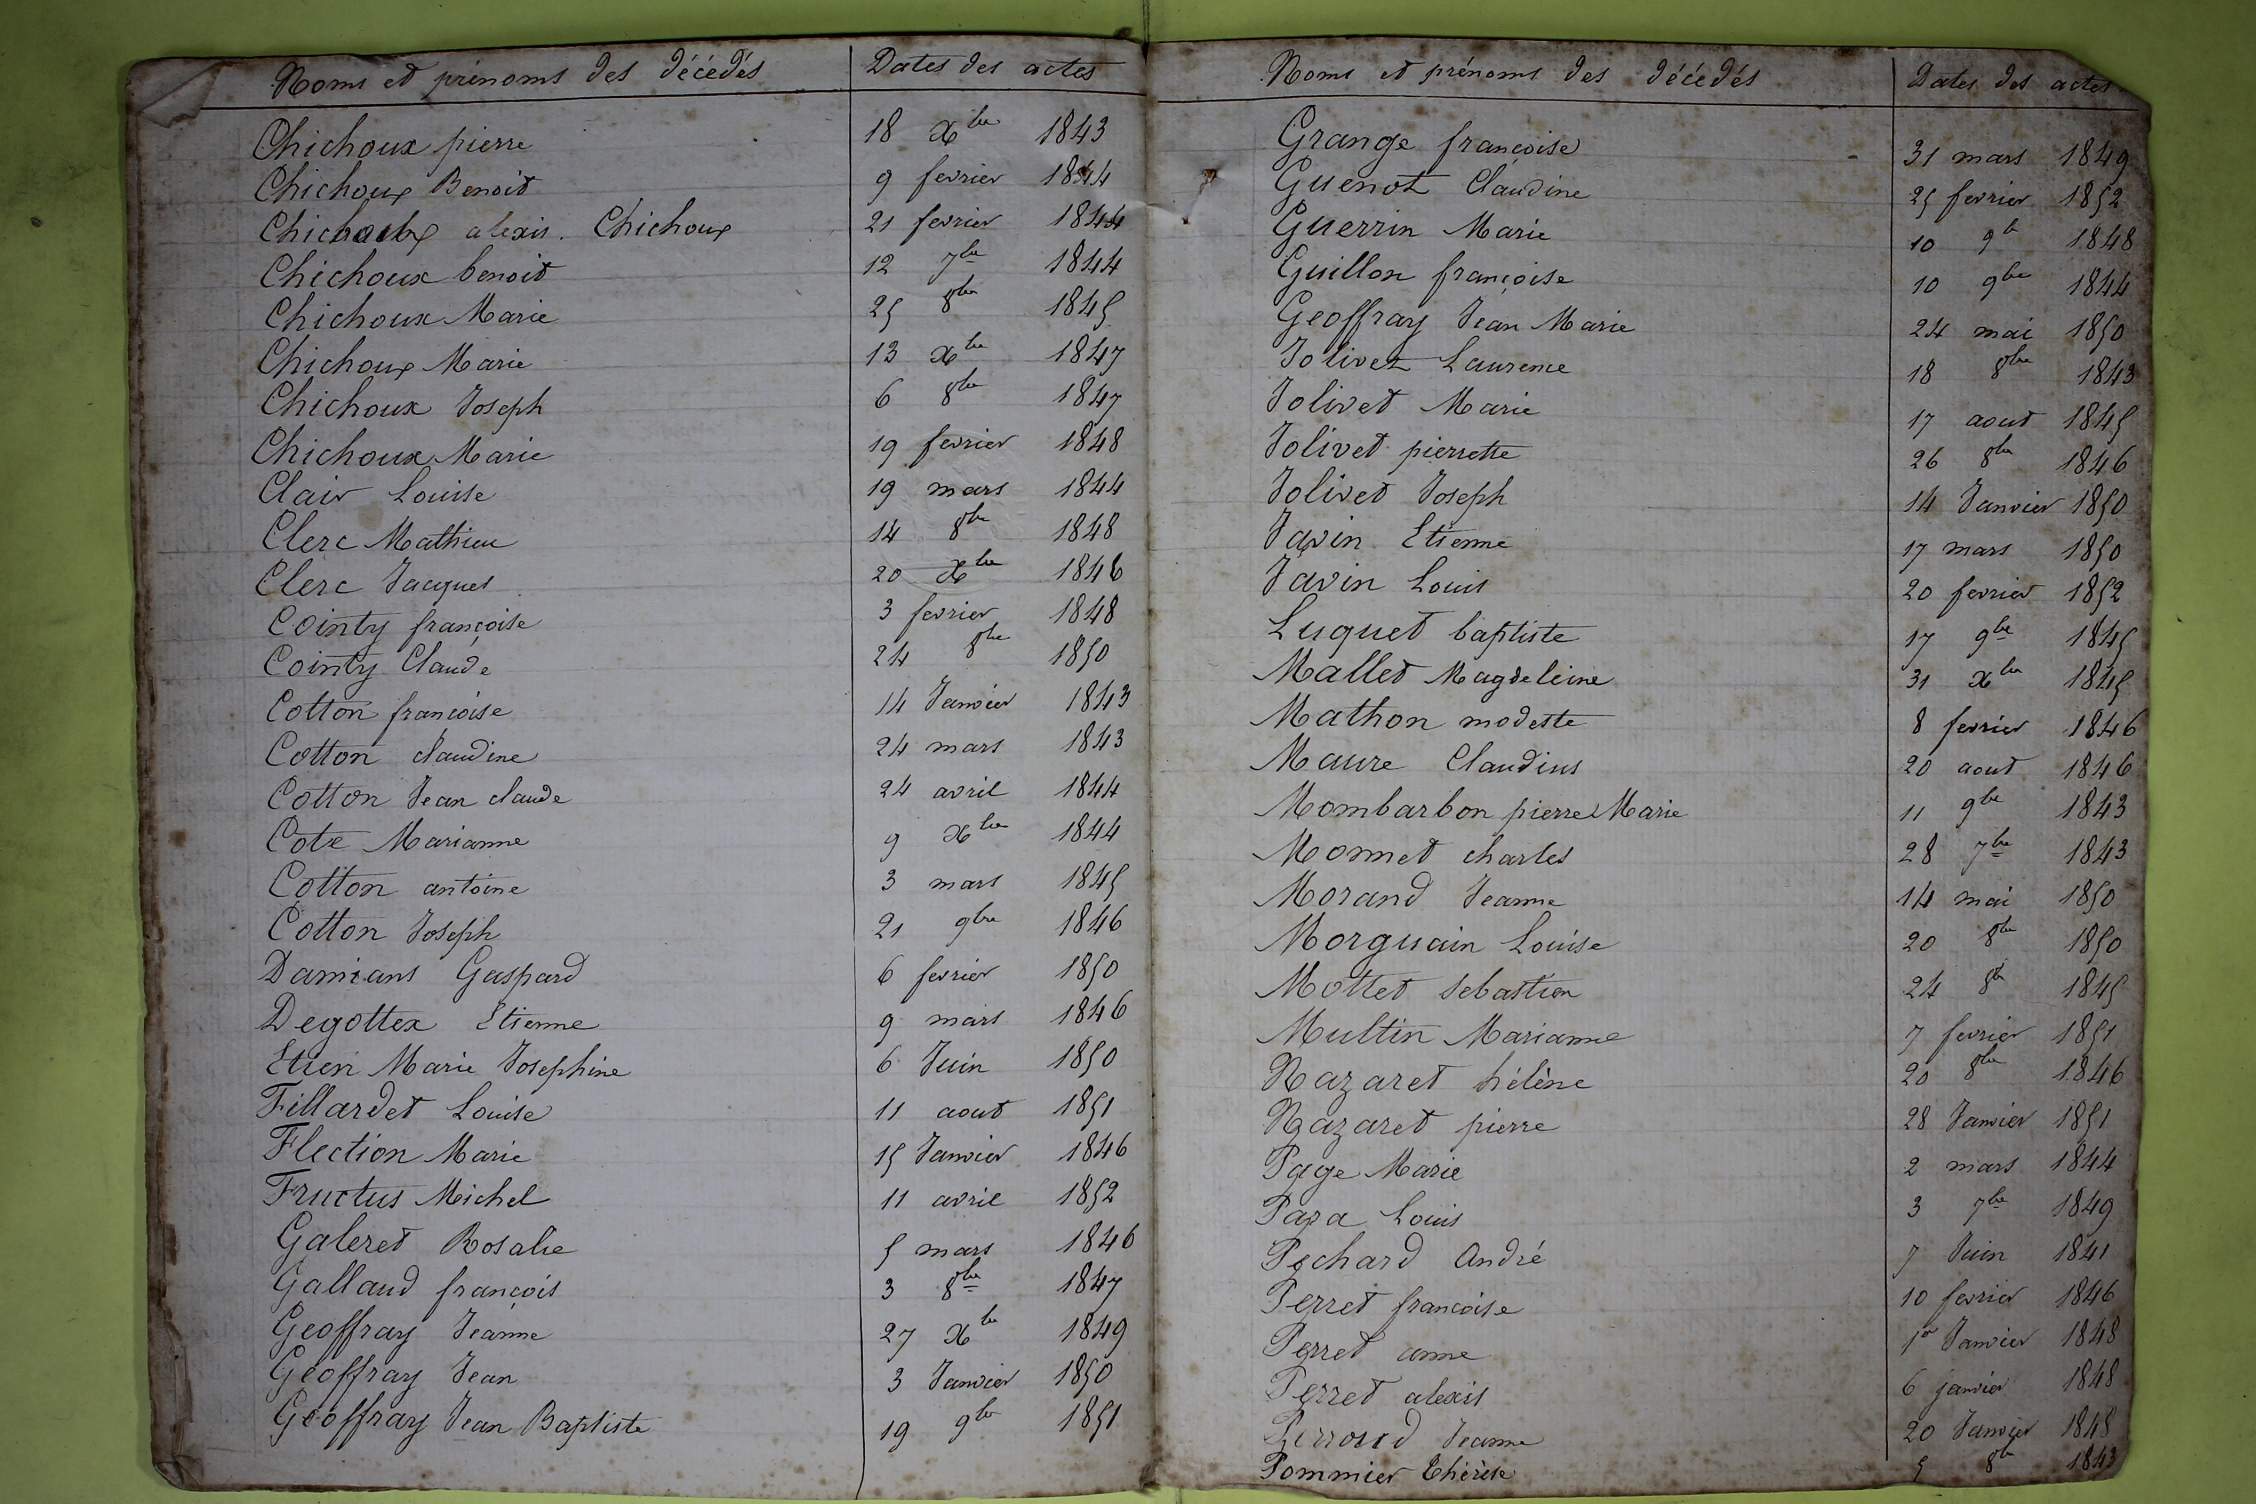 Noms et prénoms des décédés Dates des actes
Chichoux pierre 18 Xbre 1843
Chichoux Benoit 9 fevrier 1844
alexis. Chichoux 21 fevrier 1844
Chichoux benoit 12 7bre 1844
Chichoux Marie 25 8bre 1845
Chichoux Marie 13 Xbre 1847
Chichoux Joseph 6 8bre 1847
Chichoux Marie 19 fevrier 1848
Clair Louise 19 mars 1844
Clerc Mathieu 14 8bre 1848
Clerc Jacques 20 Xbre 1846
Cointy françoise 3 fevrier 1848
Cointy Claude 24 8bre 1850
Cotton françoise 14 Janvier 1843
Cotton claudine 24 mars 1843
Cotton Jean claude 24 avril 1844
Cote Marianne 9 Xbre 1844
Cotton antoine 3 mars 1845
Cotton Joseph 21 9bre 1846
Damians Gaspard 6 fevrier 1850
Degottex Etienne 9 mars 1846
Etien Marie Josephine 6 Juin 1850
Fillardet Louise 11 aout 1851
Flection Marie 15 Janvier 1846
Fructus Michel 11 avril 1852
Galeret Rosalie 5 mars 1846
Galland françois 3 8bre 1847
Geoffray Jeanne 27 Xbre 1849
Geoffray Jean 3 Janvier 1850
Geoffray Jean Baptiste 19 9bre 1851
Noms et prénoms des décédés Dates des actes
Grange françoise 31 mars 1849
Guenot Claudine 25 fevrier 1852
Guerrin Marie 10 9b 1848
Guillon françoise 10 9bre 1844
Geoffray Jean Marie 24 mai 1850
Jolivet Laurence 18 8bre 1843
Jolivet Marie 17 aout 1845
Jolivet pierrette 26 8bre 1846
Jolivet Joseph 14 Janvier 1850
Javin Etienne 17 mars 1850
Javin Louis 20 fevrier 1852
Luquet baptiste 17 9bre 1845
Mallet Magdeleine 31 Xbre 1845
Mathon modeste 8 fevrier 1846
Maure Claudius 20 aout 1846
Mombarbon pierre Marie 11 9bre 1843
Monnet charles 28 7bre 1843
Morand Jeanne 14 mai 1850
Morguain Louise 20 8bre 1850
Mottet Sebastien 24 8b 1845
Multin Marianne 7 fevrier 1851
Nazaret hélène 20 8bre 1846
Nazaret pierre 28 Janvier 1851
Page Marie 2 mars 1844
Papa Louis 3 7bre 1849
Pechard André 7 Juin 1841
Perret françoise 10 fevrier 1846
Perret anne 1er Janvier 1848
Perret alexis 6 janvier 1848
Perroud Jeanne 20 Janvier 1848
Pommier thérèse 5 8bre 1843